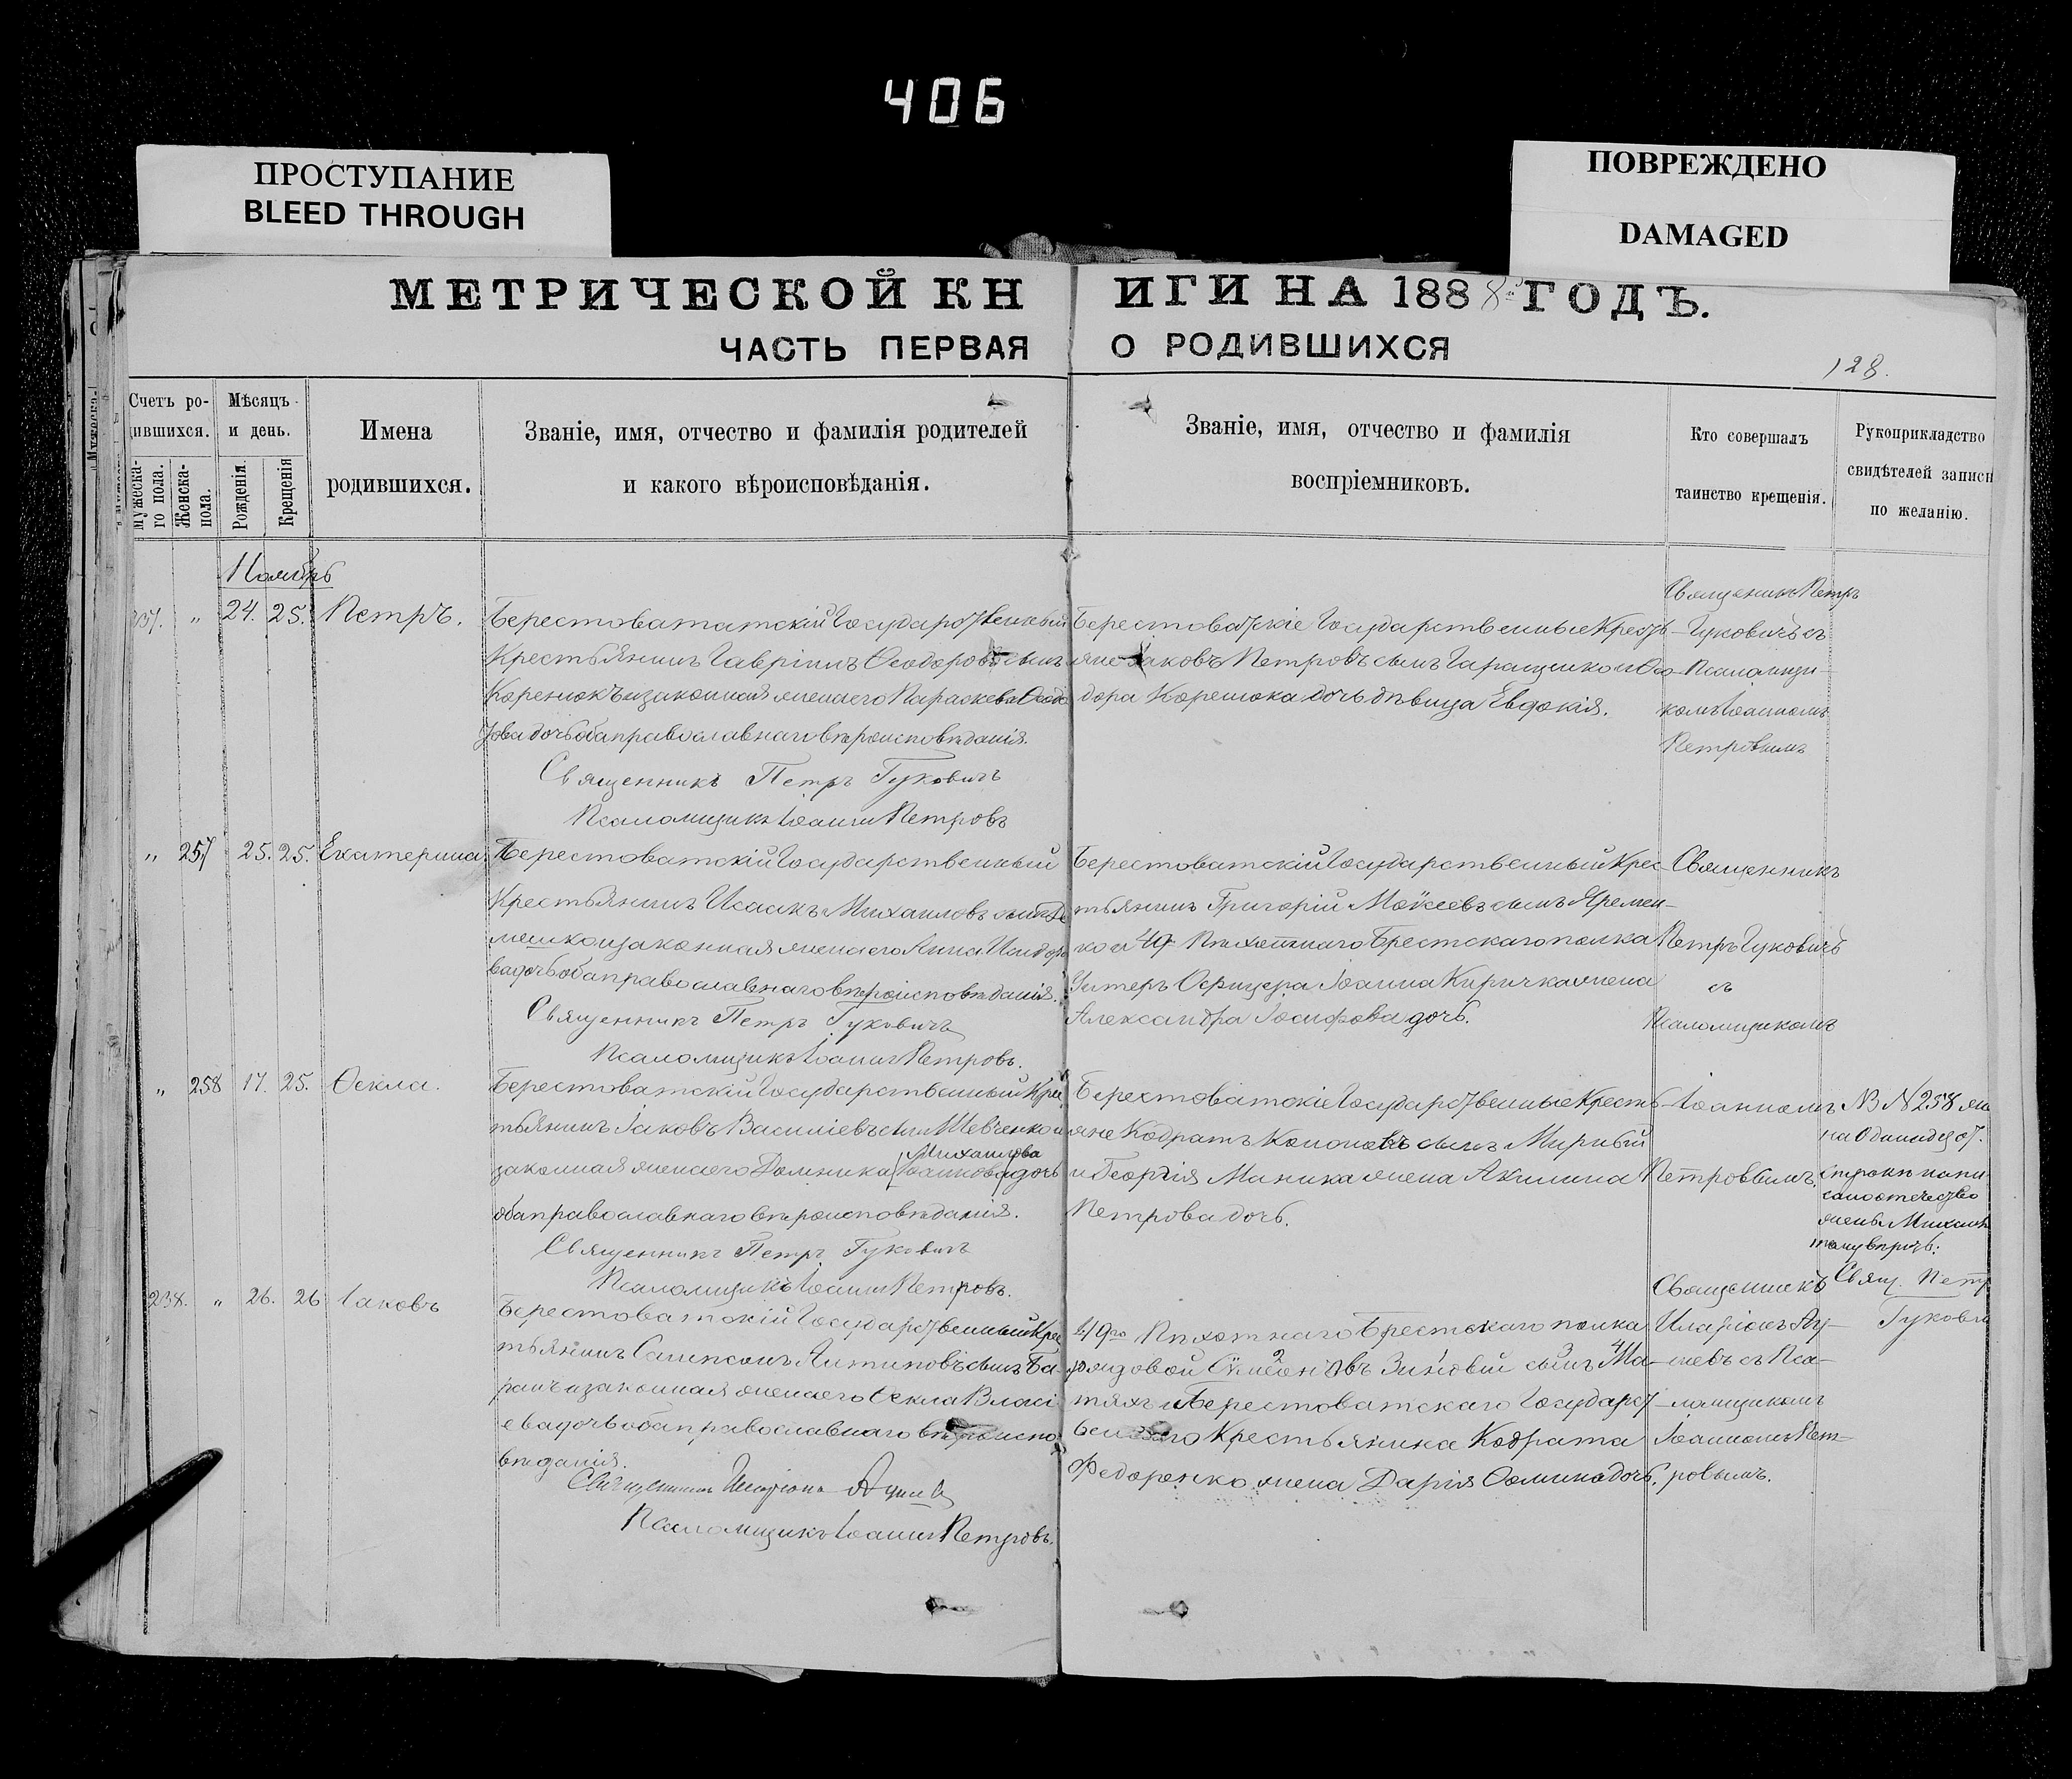 406
ПРОСТУПАНИЕ
BLEED THROUGH
ПОВРЕЖДЕНО
DAMAGED
МЕТРИЧЕСКОЙ КН ИГИ НА 1888 ГОДЪ.
ЧАСТЬ ПЕРВАЯ О РОДИВШИХСЯ
128.
Счетъ ро-
дившихся.
Мужеска-
го пола.
Женска-
пола.
Мѣсяцъ
и день.
Рожденія.
Крещенія
Имена
родившихся.
Званіе, имя, отчество и фамилія родителей
и какого вѣроисповѣданія.
Званіе, имя, отчество и фамилія
воспріемниковъ.
Кто совершалъ
таинство крещенія.
Рукоприкладство
свидѣтелей записи
по желанію.
Ноябрь
237. " 24. 25. Петръ.
Крестьянинъ Гавріилъ Ѳеодоровъ сынъ
Коренюкъ и законная жена его Параскева Ѳеодо
рова дочь оба православнаго вѣроисповѣданія.
Священникъ Петръ Гуковичъ
Псаломщикъ Іоаннъ Петровъ
Берестоватскіе Государственные Кресть-
яне Іаковъ Петровъ сынъ Гаращенко и Ѳео-
дора Коренюка дочь дѣвица Евдокія.
Священникъ Петръ
Гуковичъ съ
Псаломщи-
комъ Іоанномъ
Петровымъ
" 257 25. 25. Екатерина
Берестоватскій Государственный
Крестьянинъ Исаакъ Михаиловъ сынъ
и законная жена его Анна
ва дочь оба православнаго вѣроисповѣданія.
Священникъ Петръ Гуковичъ
Псаломщикъ Іоаннъ Петровъ.
Берестоватскій Государственный Крес-
тьянинъ Григорій Моѵсеевъ сынъ Яремен-
ко и 49 Пѣхотнаго Брестскаго полка
Унтеръ Офицера Іоанна Киричка жена
Александра Іосифова дочь.
Священникъ
Петръ Гуковичъ
съ
Псаломщикомъ
" 258 17. 25. Ѳекла.
Берестоватскій Государственный Крес
тьянинъ Іаковъ Василіевъ сынъ Шевченко и
Михаилова
законная жена его Домника (Іоаннова) дочь
оба православнаго вѣроисповѣданія.
Священникъ Петръ Гуковичъ
Псаломщикъ Іоаннъ Петровъ.
Берестоватскіе Государственные Кресть-
яне Кодратъ Кононовъ сынъ Мирный
и Георгія Маника жена Акилина
Петрова дочь.
Іоанномъ
Петровымъ.
NB № 258
строкѣ напи
сано отечество
жены
Свящ. Петр
Гукови
238. " 26. 26 Іаковъ
Берестоватскій Государственный Крес
тьянинъ Сампсонъ Антиповъ сынъ Ба-
ранъ и законная жена его Ѳекла Власі
ева дочь оба православнаго вѣроиспо
вѣданія.
Псаломщикъ Іоаннъ Петровъ.
49го Пѣхотнаго Брестскаго полка
рядовой Зиновій сынъ Ма-
тяхъ и Берестоватскаго Государст
веннаго Крестьянина Кодрата
Федоренко жена Дарія Ѳомина дочь.
Священникъ
Иларіонъ
съ Пса-
ломщикомъ
Іоанномъ Пет-
ровымъ.